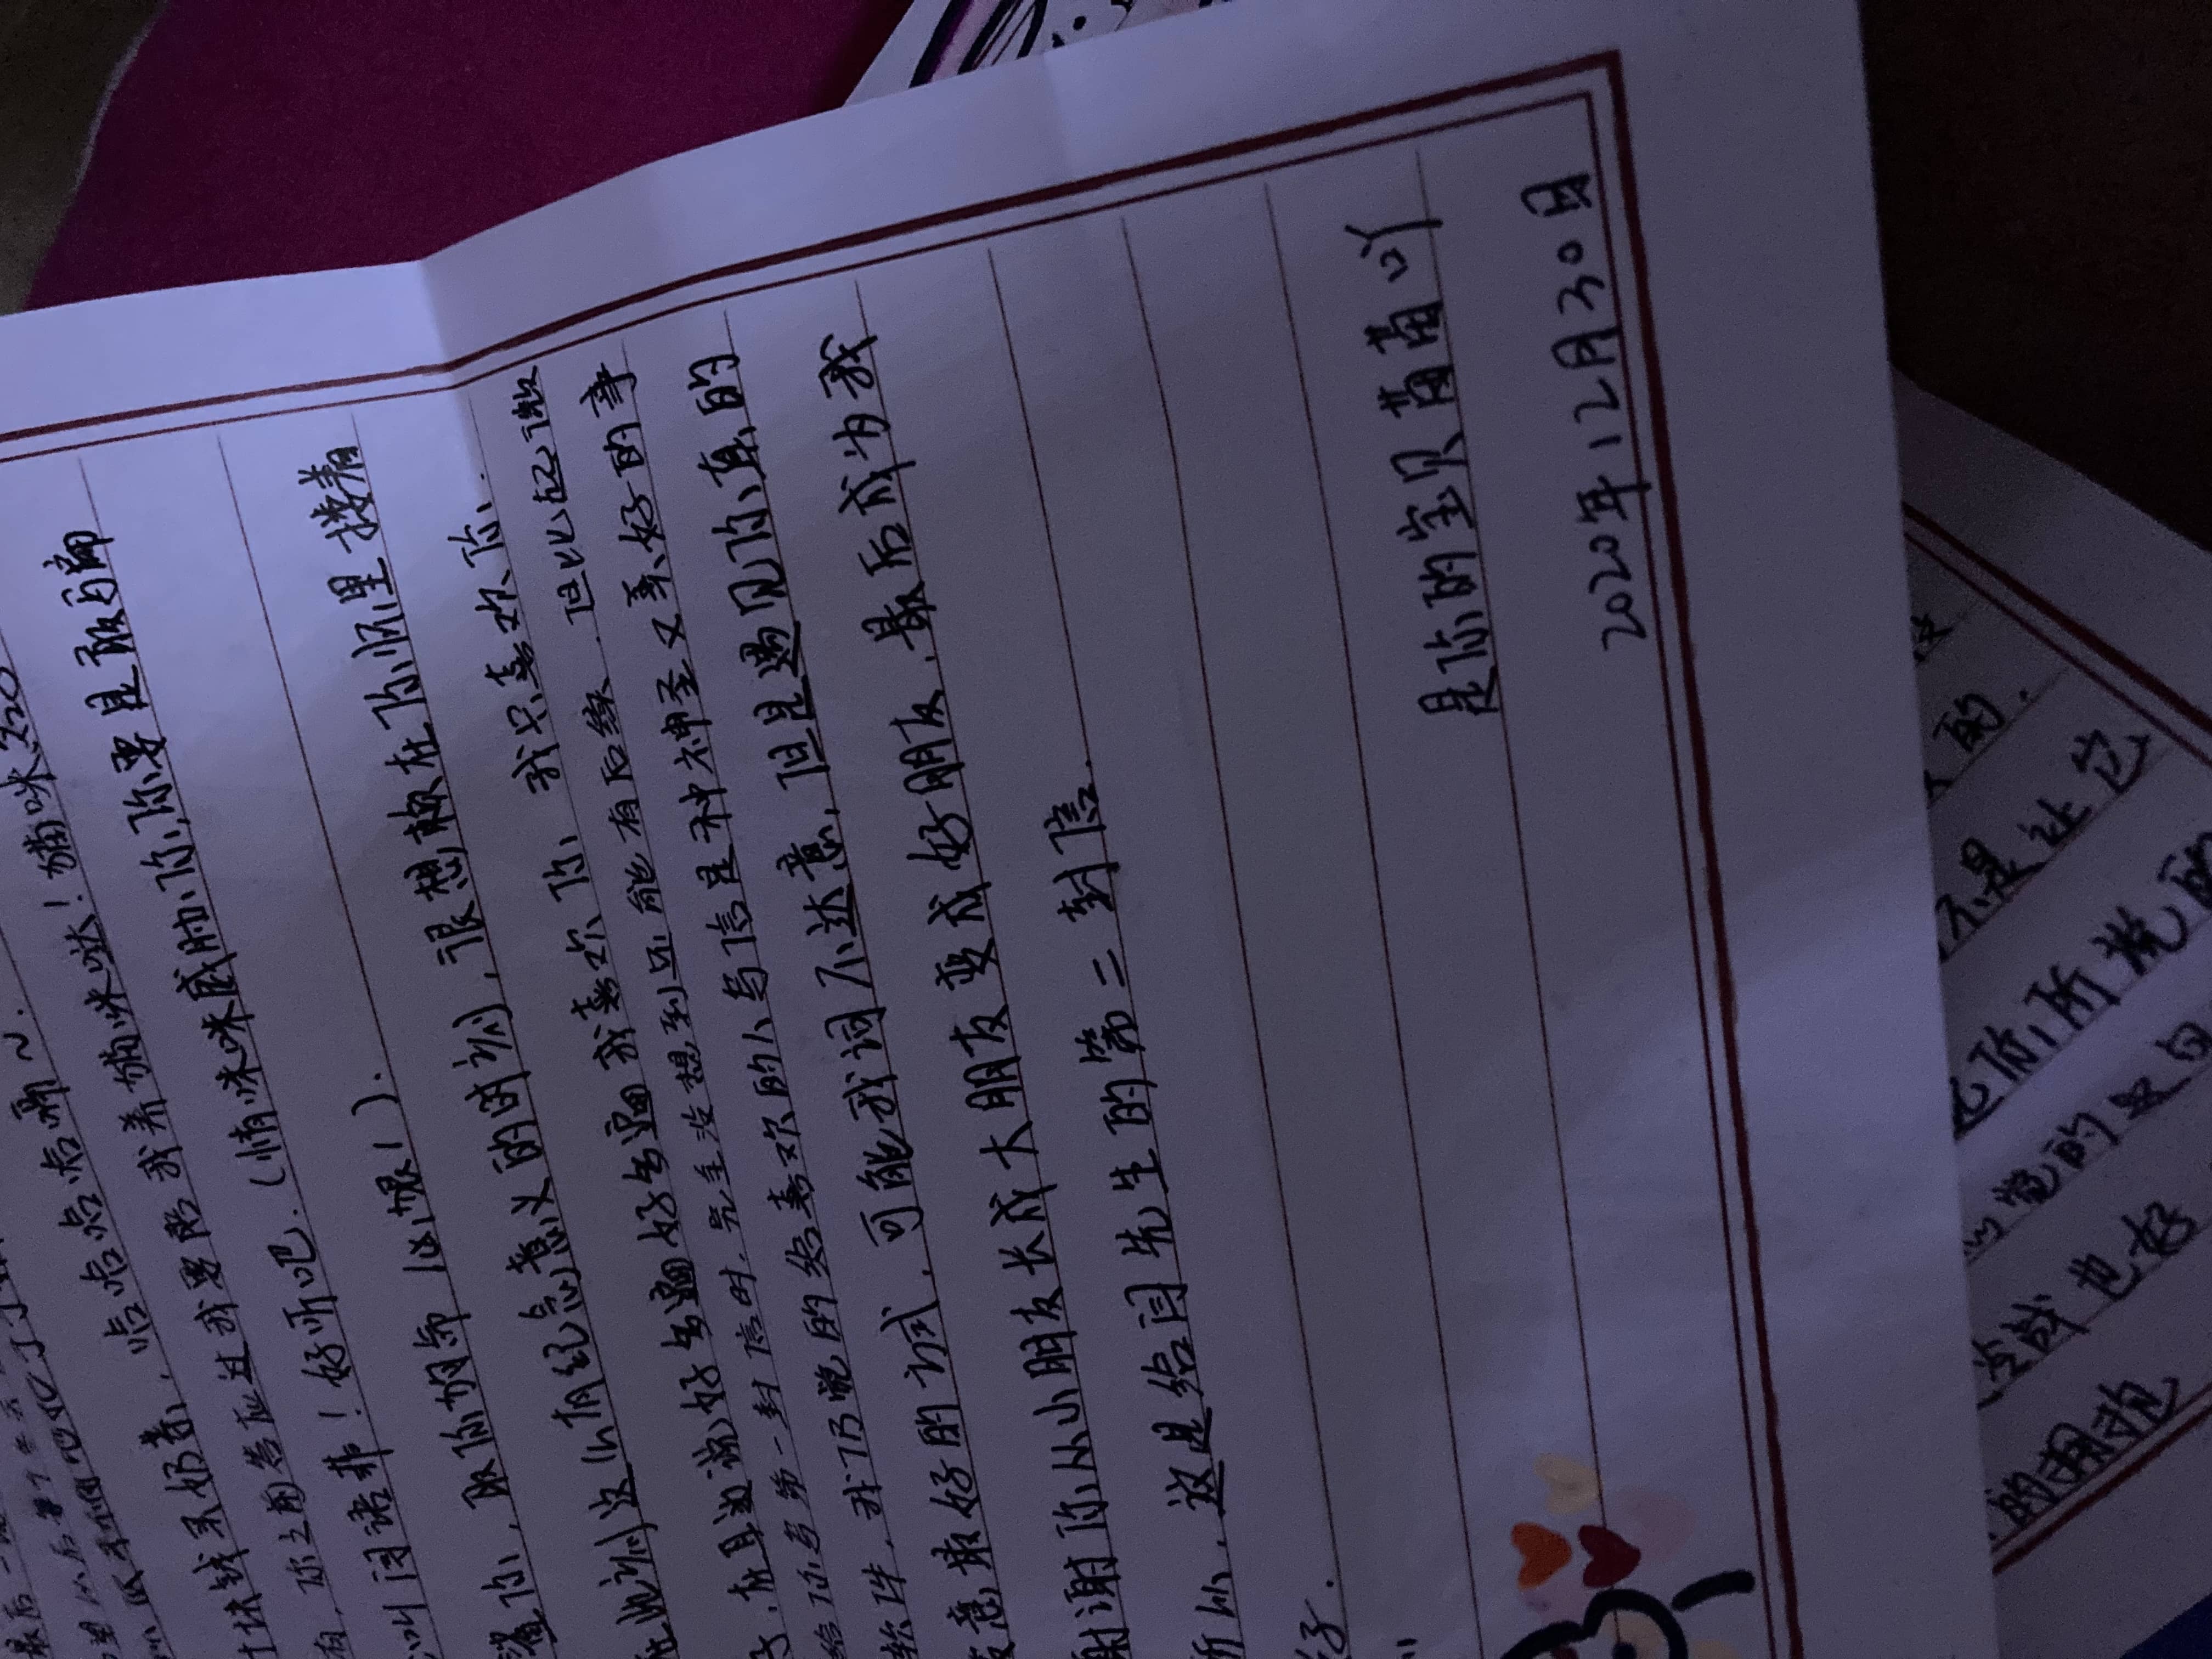 最后一
望以后每个冬天
块钱买奶茶，哈哈哈哈嗝~.
有，你之前答应过我要陪我养猫咪哒！猫咪名字
叫闫语菲！好听吧.（悄咪咪威胁你，你要是敢骗
鲨你，取你狗命（凶狠！）.
在此刻这么有纪念意义的时刻，很想赖在你怀里搂着
子，在耳边说好多遍好多遍我喜欢你，我只喜欢你.
给你写第一封信时.完全没想到还能有后续.但比起微
软件，我仍觉的给喜欢的人写信是种神圣又美好的事
意最好的方式，可能我词不达意，但是遇见你真的
谢谢你从小朋友长成大朋友变成好朋友，最后成为我
所以，这是给闫先生的第二封信.
子.
是你的宝贝茵茵吖
2020年12月30日
的.
不是让它
你所说的
觉的
冷战也好
的拥抱